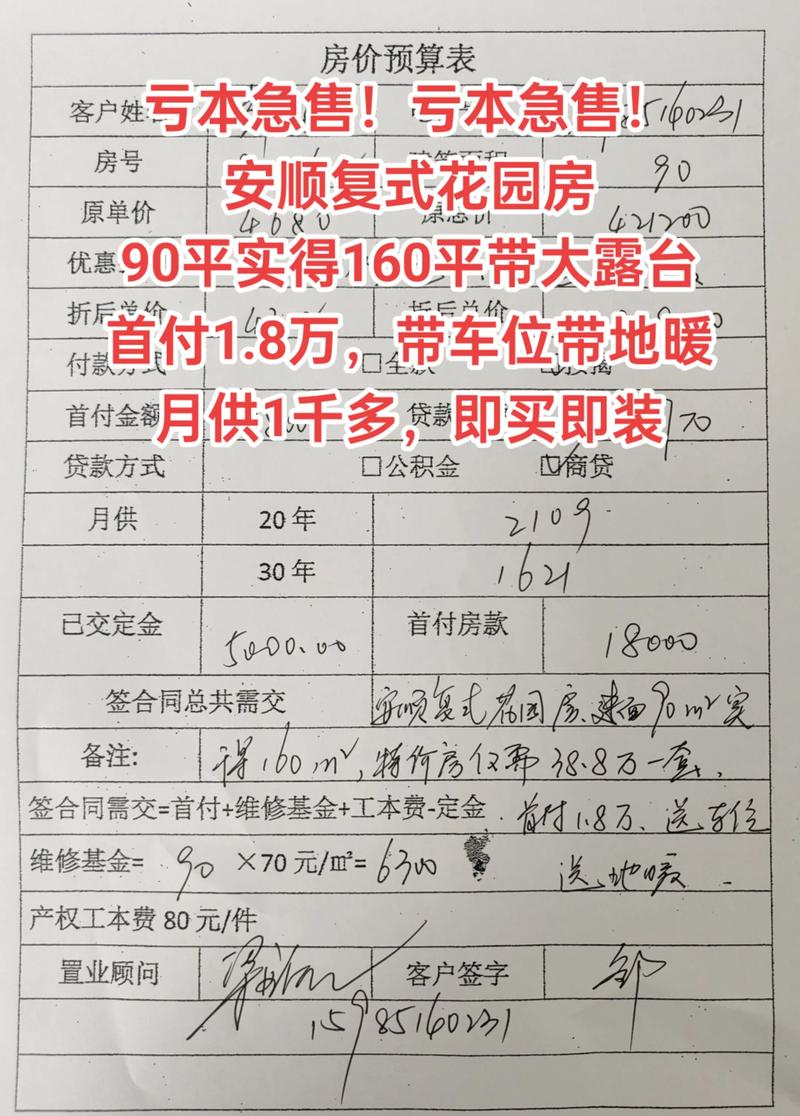 房价预算表
亏本急售！亏本急售！
安顺复式花园房
90平实得160平带大露台
首付1.8万，带车位带地暖
月供1千多，即买即装
客户姓 5160231
房号 90
原单价 4680 原总价 421200
优惠
折后单价 折后总价
付款方式 □全款 按揭
首付金额 贷款 70
贷款方式 □公积金 ☑商贷
月供 20年 2109
30年 1621
已交定金 5000.00 首付房款 18000
签合同总共需交 安顺复式花园房、建面90m²实
备注: 得160m²，特价房仅需38.8万一套、
签合同需交=首付+维修基金+工本费-定金 . 首付1.8万、送车位
维修基金= 90 ×70元/㎡= 6300 送地暖
产权工本费80元/件
置业顾问 客户签字 邹
15985160231